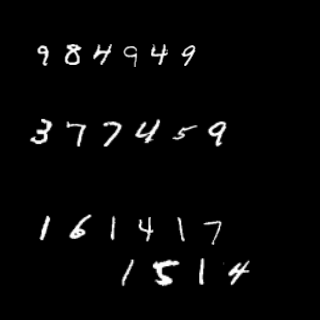 984949
377459
161417
1514